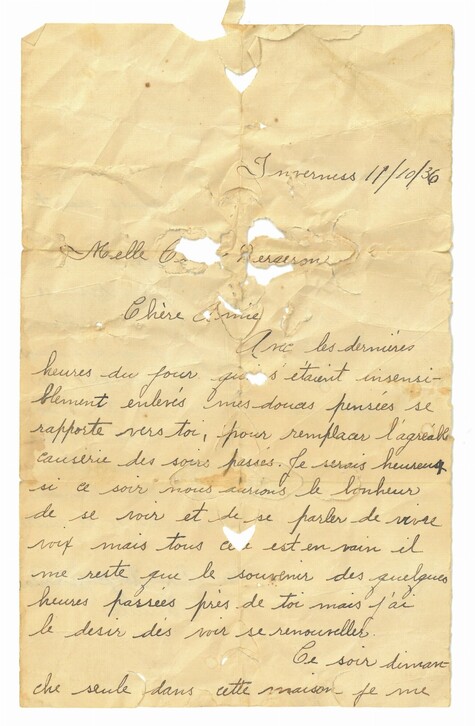 Inverness 11/10/36
Melle Bergeron
Chère Amie
Avec les dernières
heures du jour qui s'étaient insensi-
blement enlevés mes douces pensées se
rapporte vers toi, pour remplacer l'agreable
causerie des soirs passés. Je serais heureux
si ce soir nous aurions le bonheur
de se voir et de se parler de vive
voix mais tous cela est en vain il
me reste que le souvenir des quelques
heures passées près de toi mais j'ai
le desir des voir se renouveller.
Ce soir diman-
che seule dans cette maison je me